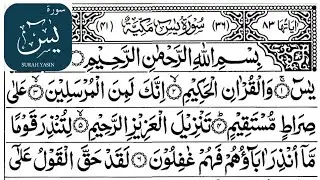 سورة
يٰسٓ
SURAH YASIN
اٰيَاتُهَا ٨٣ (٣٦) سُوْرَةُ يٰسٓ مَكِّيَّةٌ (٤١)
بِسْمِ اللّٰهِ الرَّحْمٰنِ الرَّحِيْمِ
يٰسٓ ۝١ وَالْقُرْاٰنِ الْحَكِيْمِ ۝٢ اِنَّكَ لَمِنَ الْمُرْسَلِيْنَ ۝٣ عَلٰى
صِرَاطٍ مُّسْتَقِيْمٍ ۝٤ تَنْزِيْلَ الْعَزِيْزِ الرَّحِيْمِ ۝٥ لِتُنْذِرَ قَوْمًا
مَّاۤ اُنْذِرَ اٰبَآؤُهُمْ فَهُمْ غٰفِلُوْنَ ۝٦ لَقَدْ حَقَّ الْقَوْلُ عَلٰۤى